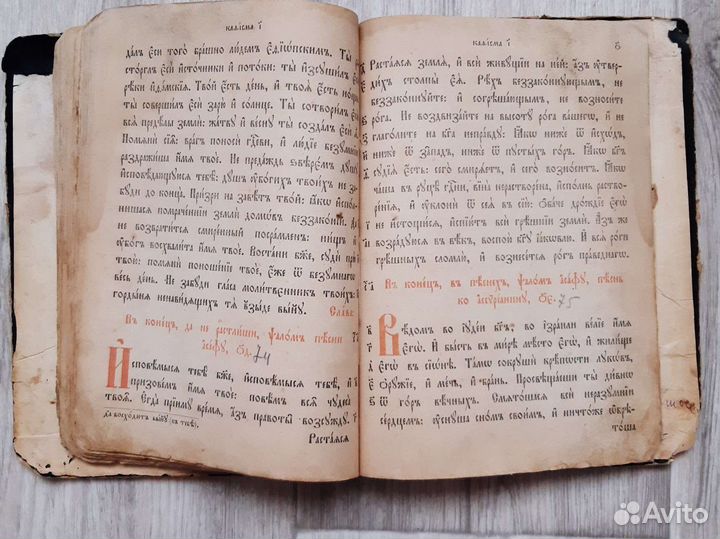 каѳісма і҃
далъ єсѝ того̀ бра́шно лю́демъ єѳїѡ́пскимъ. Ты̀
сто́рглъ єсѝ и҆сто́чники и҆ пото́ки: ты̀ и҆зсꙋши́лъ єсѝ
рѣ́ки и҆ѳа́мскїѧ. Тво́й є҆́сть де́нь, и҆ твоѧ̀ є҆́сть но́щь:
ты̀ соверши́лъ єсѝ зарю̀ и҆ со́лнце. Ты̀ сотвори́лъ єсѝ
всѧ̑ предѣ́лы землѝ: жа́твꙋ и҆ ве́снꙋ ты̀ созда́лъ єсѝ ѧ҆̀.
Помѧнѝ сїѧ̑: вра́гъ поносѝ гдⷭ҇еви, и҆ лю́дїе безꙋ́мнїи
раздражи́ша и҆́мѧ твоѐ. Не преда́ждь ѕвѣрє́мъ дꙋ́шꙋ
и҆сповѣ́дающꙋюсѧ тебѣ̀: дꙋ́шъ ᲂу҆бо́гихъ твои́хъ не за-
бꙋ́ди до конца̀. При́зри на завѣ́тъ тво́й: ꙗ҆́кѡ и҆спо́л-
нишасѧ помраче́ннїи землѝ домѡ́въ беззако́нїй. Да
не возврати́тсѧ смире́нный посра́мленъ: ни́щъ и҆
ᲂу҆бо́гъ восхва́лита и҆́мѧ твоѐ. Воста́ни бж҃е, сꙋдѝ прю̀
твою̀: помѧнѝ поноше́нїе твоѐ, є҆́же ѿ безꙋ́мнагѡ
ве́сь де́нь. Не забꙋ́ди гла́са моли́твенникъ твои́хъ:
горды́нѧ ненави́дѧщихъ тѧ̀ взы́де вы́нꙋ. Сла́ва:
Въ коне́цъ, да не растли́ши, ѱало́мъ пѣ́сни
а҆са́фꙋ, о҃д. 74
И҆сповѣ́мысѧ тебѣ̀ бж҃е, и҆сповѣ́мысѧ тебѣ̀, и҆
призове́мъ и҆́мѧ твоѐ: повѣ́мъ всѧ̑ чꙋдеса̀
твоѧ̑. Є҆гда̀ прїимꙋ̀ вре́мѧ, а҆́зъ правѡты̀ возсꙋждꙋ̀.
да восхо́дитъ вы́нꙋ (къ тебѣ̀).
Раста́ѧсѧ
каѳісма і҃
Раста́ѧсѧ землѧ̀, и҆ всѝ живꙋ́щїи на не́й: а҆́зъ ᲂу҆твер-
ди́хъ столпы̀ є҆ѧ̀. Рѣ́хъ беззако́ннꙋющымъ, не
беззако́ннꙋйте: и҆ согрѣша́ющымъ, не возноси́те
ро́га. Не воздвиза́йте на высотꙋ̀ ро́га ва́шегѡ, и҆ не
глаго́лите на бг҃а непра́вдꙋ: Ꙗ҆́кѡ нижѐ ѿ и҆схѡ́дъ,
нижѐ ѿ за́падъ, нижѐ ѿ пꙋсты́хъ го́ръ. Ꙗ҆́кѡ бг҃ъ
сꙋдїѧ̀ є҆́сть: сего̀ смирѧ́етъ, и҆ сего̀ возно́ситъ. Ꙗ҆́кѡ
ча́ша въ рꙋцѣ̀ гдⷭ҇ни, вїна̀ нерастворе́на, и҆спо́лнь раство-
ре́нїѧ, и҆ ᲂу҆клонѝ ѿ сеѧ̀ въ сїю̀: ѻ҆ба́че дро́ждїе є҆гѡ̀
не и҆стощи́сѧ, и҆спїю́тъ всѝ грѣ́шнїи землѝ. А҆́зъ же
возра́дꙋюсѧ въ вѣ́къ, воспою̀ бг҃ꙋ і҆а́кѡвлю. И҆ всѧ̑ ро́ги
грѣ́шныхъ сломлю̀, и҆ вознесе́тсѧ ро́гъ пра́веднагѡ.
Въ коне́цъ, въ пѣ́снехъ, ѱало́мъ а҆са́фꙋ, пѣ́снь
ко а҆ссѷрі́анинꙋ, о҃е. 75
Вѣ́домъ во і҆ꙋде́и бг҃ъ: во і҆зра́или ве́лїе и҆́мѧ
є҆гѡ̀. И҆ бы́сть въ ми́рѣ мѣ́сто є҆гѡ̀, и҆ жили́ще
є҆гѡ̀ въ сїѡ́нѣ. Та́мѡ сокрꙋшѝ крѣ́пѡсти лꙋкѡ́въ,
ѻ҆рꙋ́жїе, и҆ ме́чь, и҆ бра́нь. Просвѣща́еши ты̀ ди́внѡ
ѿ го́ръ вѣ́чныхъ. Смѧто́шасѧ всѝ неразꙋ́мнїи
се́рдцемъ: ᲂу҆снꙋ́ша сно́мъ свои́мъ, и҆ ничто́же ѡ҆брѣ-
то́ша
Avito